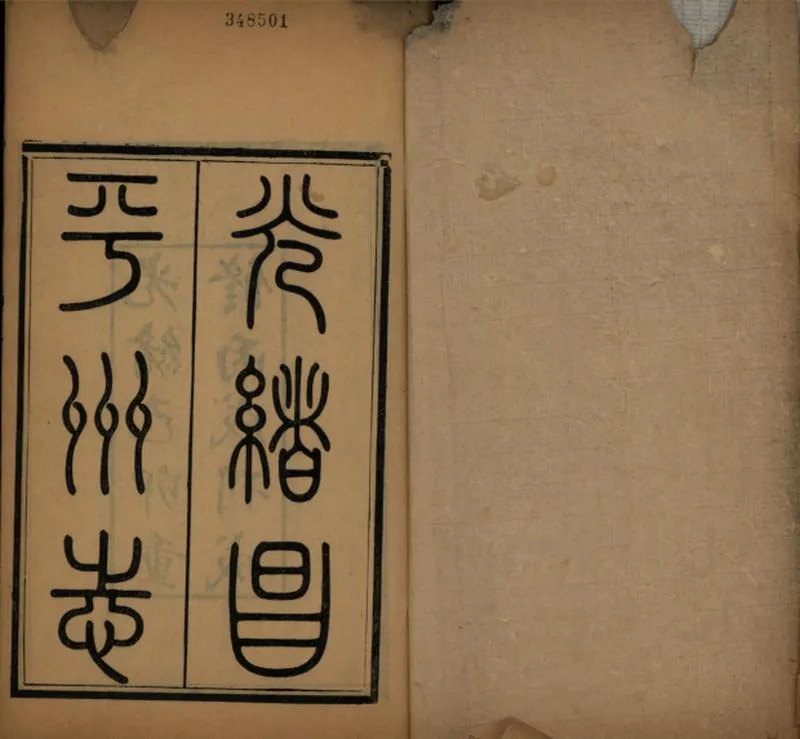 348501
光緒昌
平州志